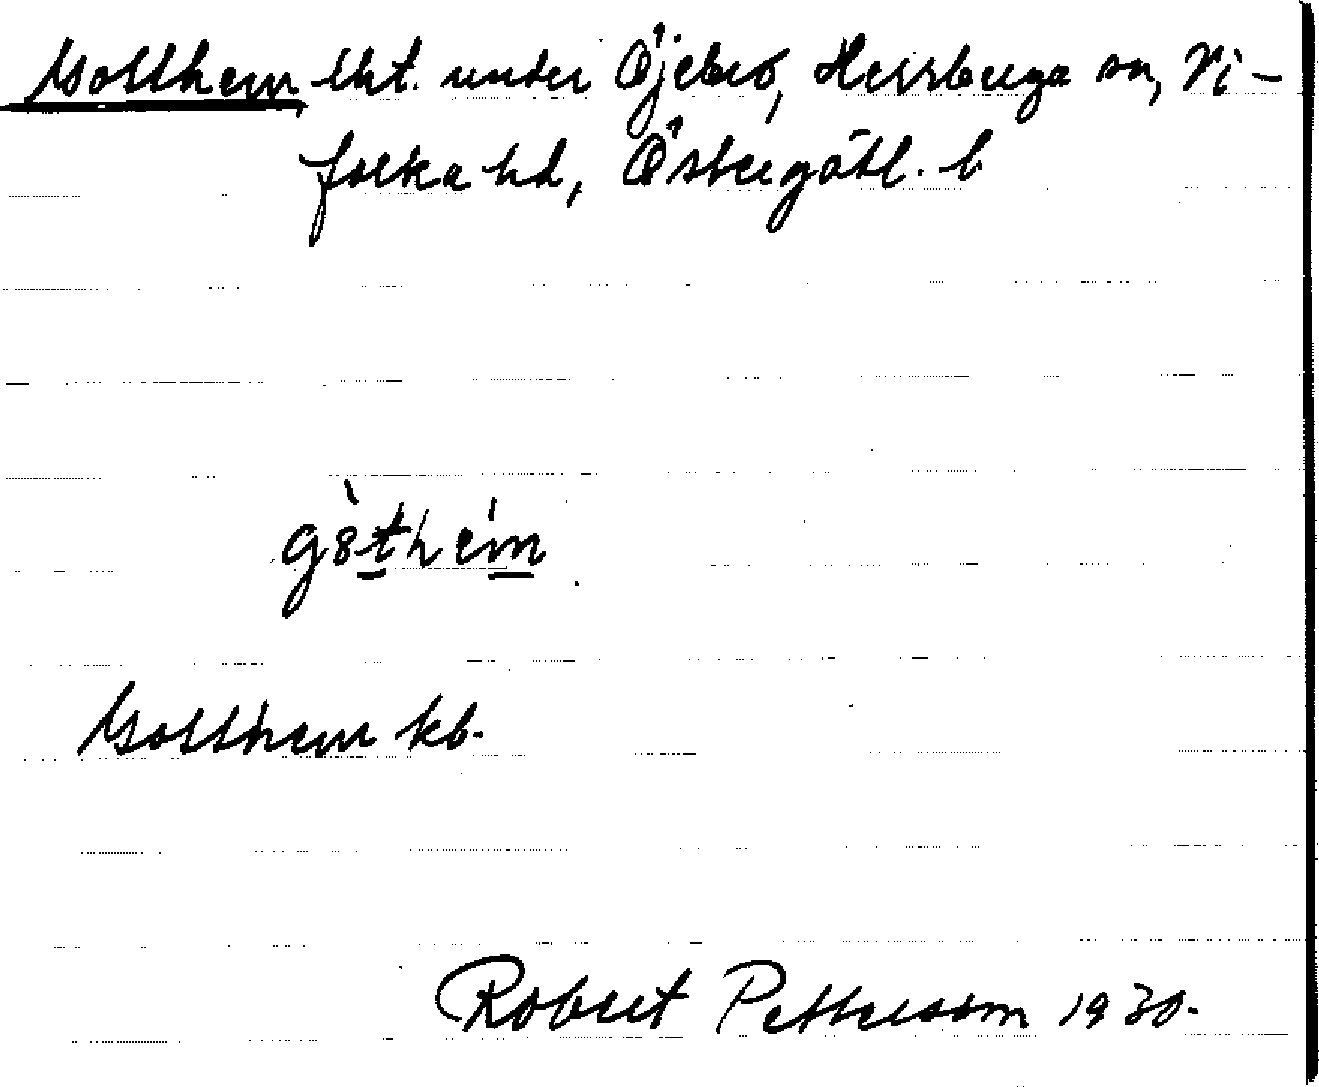 Gotthem, lht. under Öjebro, Herrberga sn, Vi-
folka hd, Östergötl. l.
gò̀them
Gotthem kb.
Robert Pettersson 1930.